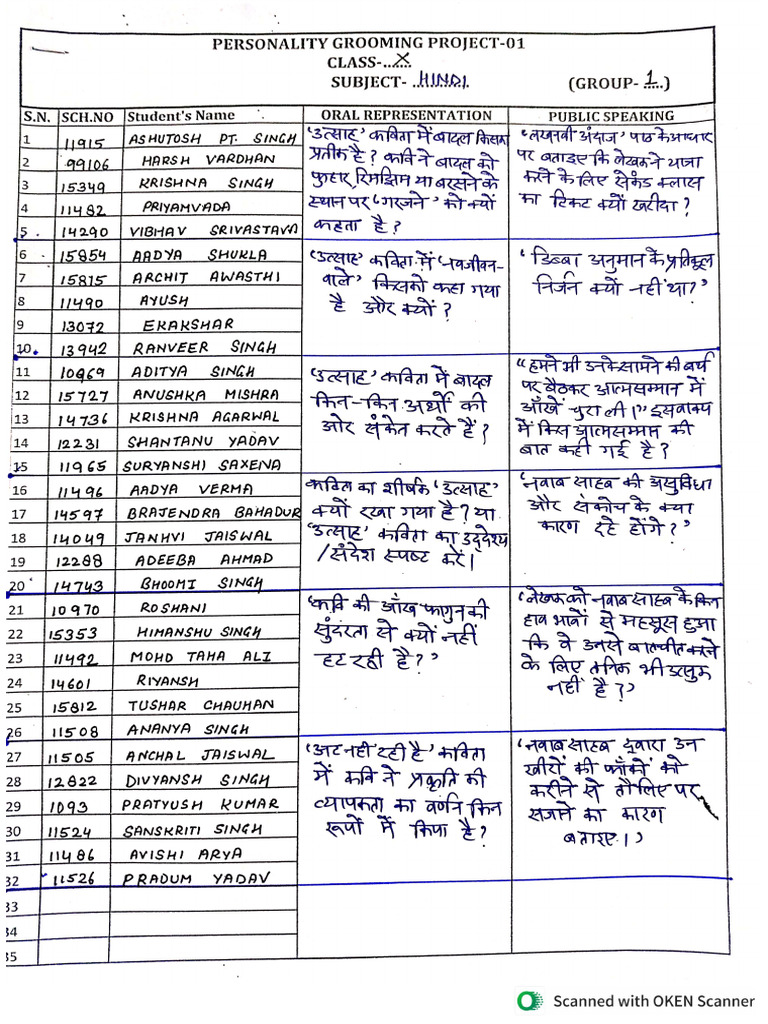 PERSONALITY GROOMING PROJECT-01
CLASS-...X...
SUBJECT- ..HINDI.. (GROUP- 1 )
S.N. SCH.NO Student's Name ORAL REPRESENTATION PUBLIC SPEAKING
1 11915 ASHUTOSH PT. SINGH
2 99106 HARSH VARDHAN
3 15349 KRISHNA SINGH
4 11482 PRIYAMVADA
5 14290 VIBHAV SRIVASTAVA
'उत्साह' कविता में बादल किसका
प्रतीक है? कवि ने बादल को
फुहार, रिमझिम या बरसने के
स्थान पर 'गरजने' को क्यों
कहता है?
'लखनवी अंदाज' पाठ के आधार
पर बताइए कि लेखक ने यात्रा
करने के लिए सेकंड क्लास
का टिकट क्यों खरीदा?
6 15854 AADYA SHUKLA
7 15815 ARCHIT AWASTHI
8 11490 AYUSH
9 13072 EKAKSHAR
10. 13942 RANVEER SINGH
'उत्साह' कविता में 'नवजीवन-
वाले' किसको कहा गया
है और क्यों?
'डिब्बा अनुमान के प्रतिकूल
निर्जन क्यों नहीं था?'
11 10969 ADITYA SINGH
12 15727 ANUSHKA MISHRA
13 14736 KRISHNA AGARWAL
14 12231 SHANTANU YADAV
15 11965 SURYANSHI SAXENA
'उत्साह' कविता में बादल
किन-किन अर्थों की
ओर संकेत करते हैं?
"हमने भी उनके सामने की बर्थ
पर बैठकर आत्मसम्मान में
आँखें चुरा ली।" इस वाक्य
में किस आत्मसम्मान की
बात कही गई है?
16 11496 AADYA VERMA
17 14597 BRAJENDRA BAHADUR
18 14049 JANHVI JAISWAL
19 12288 ADEEBA AHMAD
20 14743 BHOOMI SINGH
कविता का शीर्षक 'उत्साह'
क्यों रखा गया है? या
'उत्साह' कविता का उद्देश्य
/संदेश स्पष्ट करें।
'नवाब साहब की असुविधा
और संकोच के क्या
कारण रहे होंगे?'
21 10970 ROSHANI
22 15353 HIMANSHU SINGH
23 11492 MOHD TAHA ALI
24 14601 RIYANSH
25 15812 TUSHAR CHAUHAN
26 11508 ANANYA SINGH
'कवि की आँख फागुन की
सुंदरता से क्यों नहीं
हट रही है?'
'लेखक को नवाब साहब के किन
हाव भावों से महसूस हुआ
कि वे उनसे बातचीत करने
के लिए तनिक भी उत्सुक
नहीं है?'
27 11505 ANCHAL JAISWAL
28 12822 DIVYANSH SINGH
29 1093 PRATYUSH KUMAR
30 11524 SANSKRITI SINGH
31 11486 AVISHI ARYA
32 11526 PRADUM YADAV
'अट नहीं रही है' कविता
में कवि ने प्रकृति की
व्यापकता का वर्णन किन
रूपों में किया है?
'नवाब साहब द्वारा उन
खीरों की फाँकों को
करीने से तौलिए पर
सजाने का कारण
बताइए।'
33
34
35
Scanned with OKEN Scanner